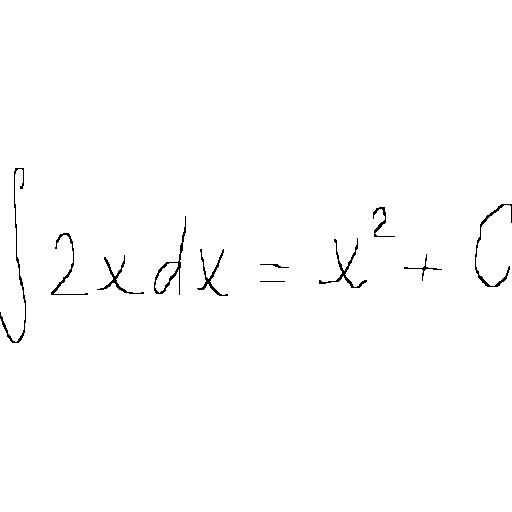 ∫ 2x dx = x² + C